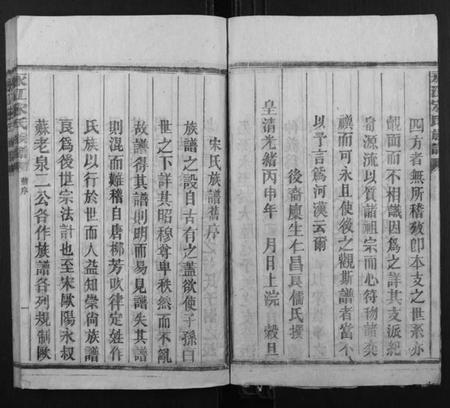 四方者無所稽攷卽本支之世系亦
覿面而不相識因爲之詳其支派紀
源流以質諸祖宗而心符物前奕
禩而可永且使後之觀斯譜者當不
以予言爲河漢云爾
後裔廩生仁昌良儒氏撰
皇清光緒丙申年 月日上浣 穀旦
宋氏族譜舊序
族譜之設自古有之盖欲使子孫百
世之下詳其昭穆尊卑秩然而不亂
故譜得其譜則明而易見譜失其譜
則混而難稽自唐柳芳改律定姓作
氏族以行於世而人益知崇尙族譜
良爲後世宗法計也至宋歐陽永叔
蘇老泉二公各作族譜各列規制歐
宋氏族譜
舊序
一